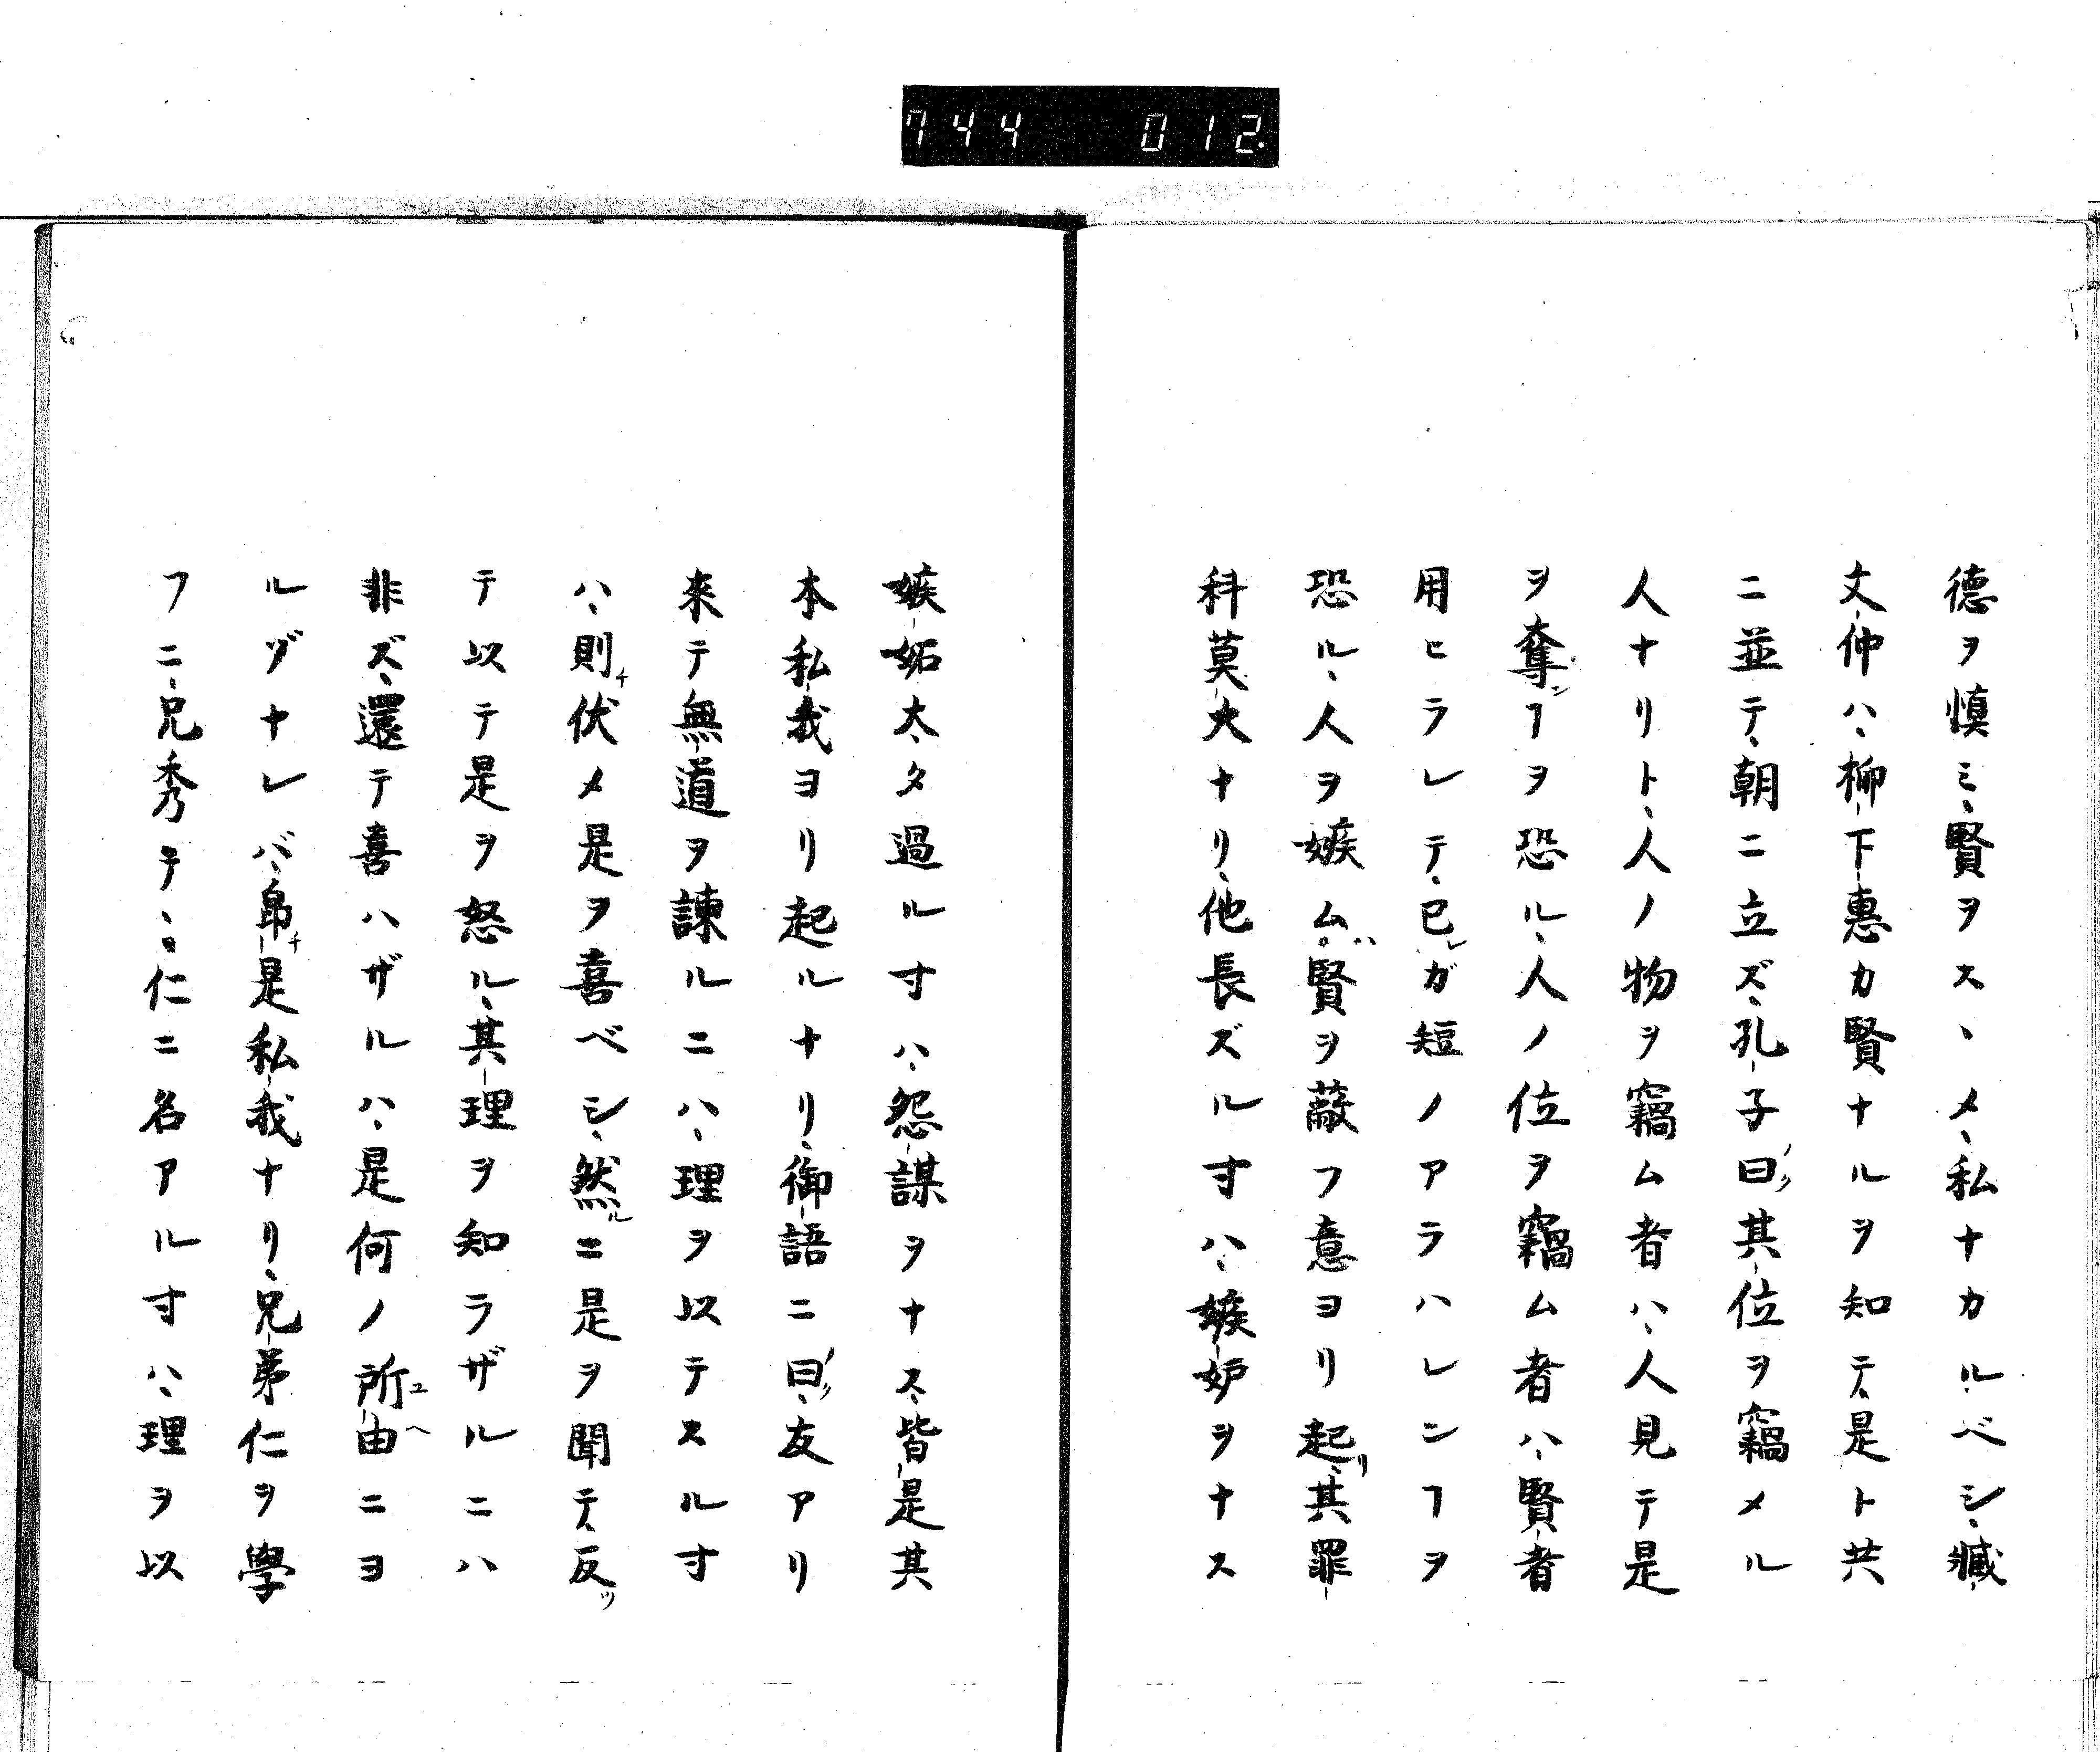 744 012
徳ヲ慎ミ、賢ヲスヽメ、私ナカルベシ、臧
文仲ハ、柳下惠カ賢ナルヲ知テ、是ト共
ニ並テ、朝ニ立ズ、孔子曰ノク其位ヲ竊メル
人ナリト、人ノ物ヲ竊ム者ハ、人見テ是
ヲ奪ンヿヲ恐ル、人ノ位ヲ竊ム者ハ、賢者
用ヒラレテ、已レガ短ノアラハレンヿヲ
恐ル、人ヲ嫉ムハ、賢ヲ蔽フ意ヨリ起リ、其罪
科莫大ナリ、他長ズル寸ハ、嫉妒ヲナス
嫉妬太タ過ル寸ハ、怨謀ヲナス、皆是其
本私我ヨリ起ルナリ、御語ニ曰ノク、友アリ
来テ無道ヲ諫ルニハ、理ヲ以テスル寸
ハ、則チ伏メ是ヲ喜ベシ、然ルニ是ヲ聞テ、反ツ
テ以テ是ヲ怒ル、其理ヲ知ラザルニハ
非ズ、還テ喜ハザルハ、是何ノ所由ユヘニヨ
ルゾナレバ、帛チ是私我ナリ、兄弟仁ヲ學
フニ、兄秀テヽ、仁ニ名アル寸ハ、理ヲ以